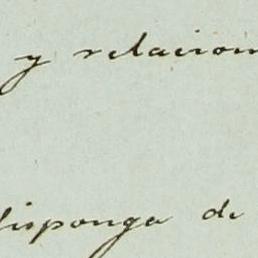 y relacion
disponga de